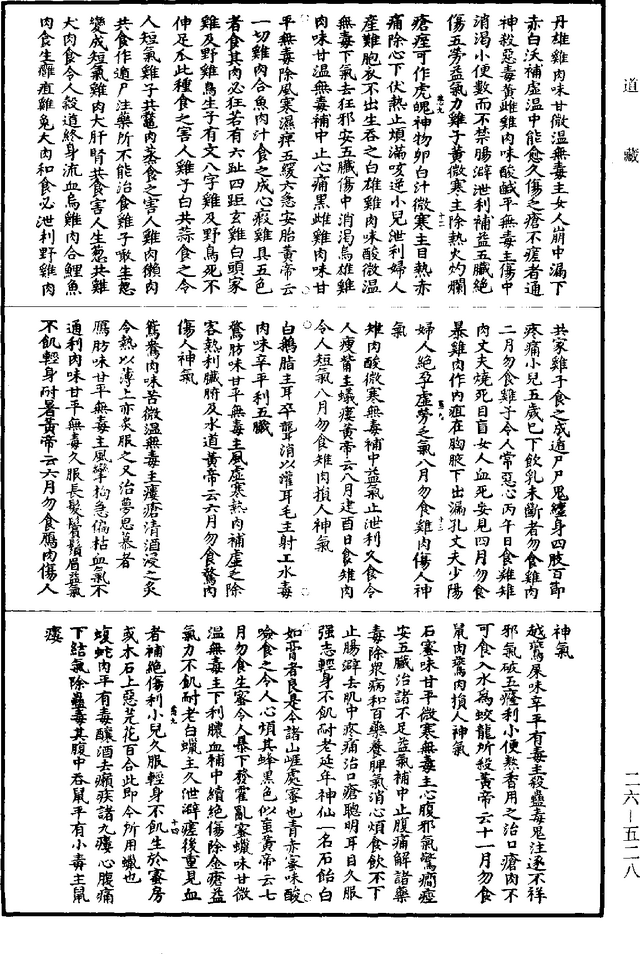 道藏
丹雄雞肉味甘微溫無毒主女人崩中漏下
赤白沃補虛溫中能愈久傷之瘡不瘥者通
神殺惡毒黃雌雞肉味酸鹹平無毒主傷中
消渴小便數而不禁腸澼泄利補益五臟絕
傷五勞益氣力雞子黃微寒主除熱火灼爛
瘡痓可作虎魄神物卵白汁微寒主目熱赤
痛除心下伏熱止煩滿咳逆小兒泄利婦人
產難胞衣不出生吞之白雄雞肉味酸微溫
無毒下氣去狂邪安五臟傷中消渴烏雄雞
肉味甘溫無毒補中止心痛黑雌雞肉味甘
平無毒除風寒濕痹五緩六急安胎黃帝云
一切雞肉合魚肉汁食之成心瘕雞具五色
者食其肉必狂若有六趾四距玄雞白頭家
雞及野雞鳥生子有文八字雞及野鳥死不
伸足爪此種食之害人雞子白共蒜食之令
人短氣雞子共鱉肉蒸食之害人雞肉獺肉
共食作遁尸注藥所不能治食雞子啖生葱
變成短氣雞肉犬肝腎共食害人生葱共雞
犬肉食令人穀道終身流血烏雞肉合鯉魚
肉食生癰疽雞兔犬肉和食必泄利野雞肉
共家雞子食之成遁尸尸鬼纏身四肢百節
疼痛小兒五歲已下飲乳未斷者勿食雞肉
二月勿食雞子令人常惡心丙午日食雞雉
肉丈夫燒死目盲女人血死妄見四月勿食
暴雞肉作內疽在胸腋下出漏孔丈夫少陽
婦人絕孕虛勞乏氣八月勿食雞肉傷人神
氣
雉肉酸微寒無毒補中益氣止泄利久食令
人瘦嘴主蟻瘻黃帝云八月建酉日食雉肉
令人短氣八月勿食雉肉損人神氣
白鵝脂主耳卒聾消以灌耳毛主射工水毒
肉味辛平利五臟
鶩肪味甘平無毒主風虛寒熱肉補虛乏除
客熱利臟腑及水道黃帝云六月勿食鶩肉
傷人神氣
鴛鴦肉味苦微溫無毒主瘻瘡清酒浸之炙
令熱以薄上亦炙服之又治夢思慕者
鴈肪味甘平無毒主風攣拘急偏枯血氣不
通利肉味甘平無毒久服長髮鬢鬚眉益氣
不飢輕身耐暑黃帝云六月勿食鴈肉傷人
神氣
越鷰屎味辛平有毒主殺蠱毒鬼注逐不祥
邪氣破五癃利小便熬香用之治口瘡肉不
可食入水為蛟龍所殺黃帝云十一月勿食
鼠肉鷰肉損人神氣
石蜜味甘平微寒無毒主心腹邪氣驚癇痙
安五臟治諸不足益氣補中止腹痛解諸藥
毒除眾病和百藥養脾氣消心煩食飲不下
止腸澼去肌中疼痛治口瘡聰明耳目久服
强志輕身不飢耐老延年神仙一名石飴白
如膏者良是今諸山崖處蜜也青赤蜜味酸
噞食之令人心煩其蜂黑色似虻黃帝云七
月勿食生蜜令人暴下發霍亂蜜蠟味甘微
溫無毒主下利膿血補中續絕傷除金瘡益
氣力不飢耐老白蠟主久泄澼瘥後重見血
者補絕傷利小兒久服輕身不飢生於蜜房
或木石上惡芫花百合此即今所用蠟也
蝮蛇肉平有毒釀酒去癩疾諸九瘻心腹痛
下結氣除蠱毒其腹中吞鼠平有小毒主鼠
瘻
二六—五二八